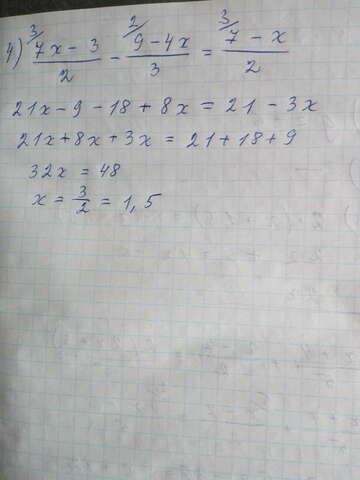 4) ³⁄ (7x - 3)/2 - ²⁄ (9 - 4x)/3 = ³⁄ (7 - x)/2
21x - 9 - 18 + 8x = 21 - 3x
21x + 8x + 3x = 21 + 18 + 9
32x = 48
x = 3/2 = 1,5